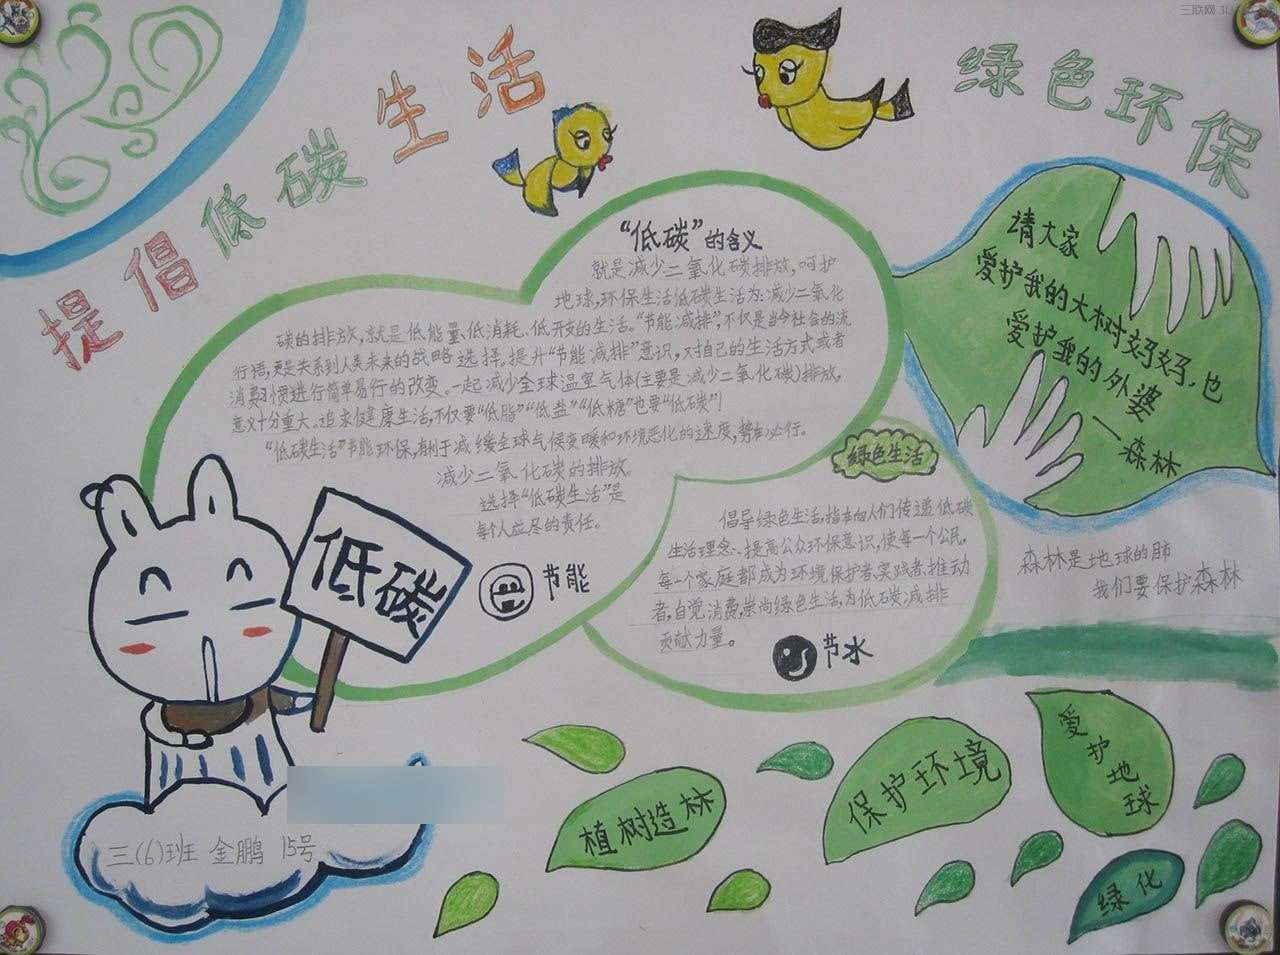 三联网 3L
提倡低碳生活
绿色环保
“低碳”的含义
就是减少二氧化碳排放,呵护
地球,环保生活低碳生活为:减少二氧化
碳的排放,就是低能量、低消耗、低开支的生活。“节能减排”,不仅是当今社会的流
行语,更是关系到人类未来的战略选择,提升“节能减排”意识,对自己的生活方式或者
消费习惯进行简单易行的改变。一起减少全球温室气体(主要是减少二氧化碳)排放,
意义十分重大。追求健康生活,不仅要“低脂”“低盐”“低糖”也要“低碳”!
“低碳生活”节能环保,有利于减缓全球气候变暖和环境恶化的速度,势在必行。
减少二氧化碳的排放。
选择“低碳生活”是
每个人应尽的责任。
节能
低碳
请大家
爱护我的大树妈妈,也
爱护我的外婆
——森林
绿色生活
倡导绿色生活,指在向人们传递低碳
生活理念、提高公众环保意识,使每一个公民,
每一个家庭都成为环境保护者、实践者、推动
者,自觉消费,崇尚绿色生活,为低碳减排
贡献力量。
节水
森林是地球的肺
我们要保护森林
植树造林
保护环境
爱护地球
绿化
三(6)班 金鹏 15号